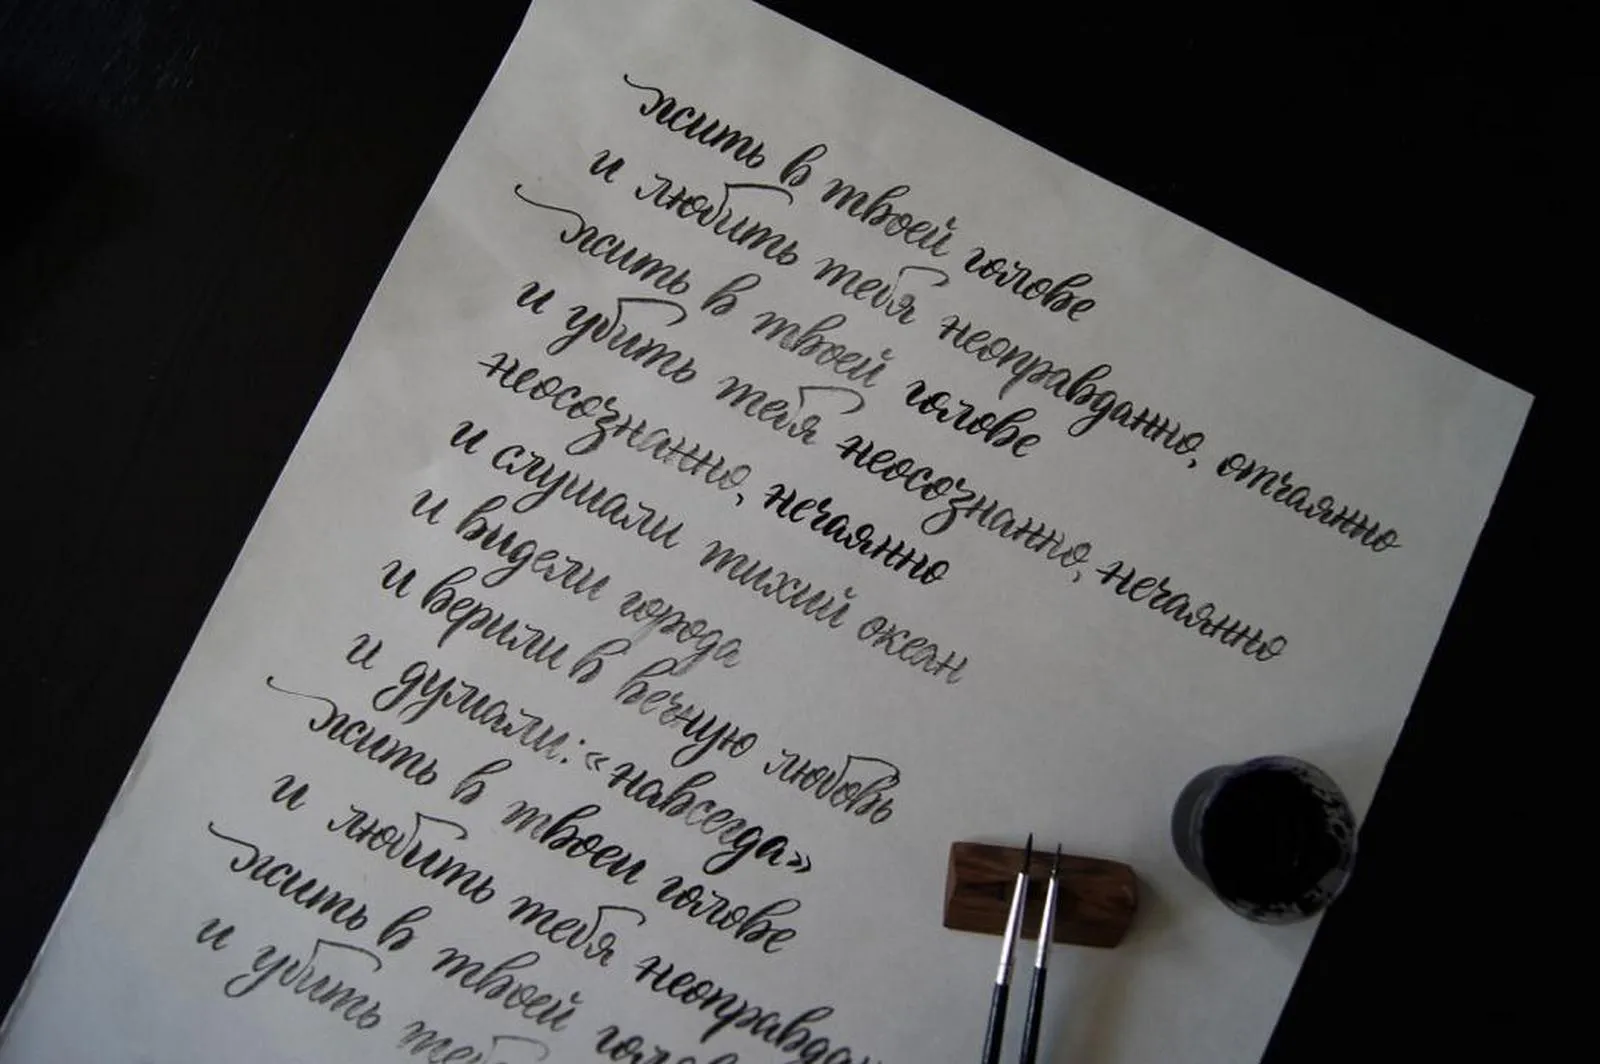 жить в твоей голове
и любить тебя неоправданно, отчаянно
жить в твоей голове
и убить тебя неосознанно, нечаянно
неосознанно, нечаянно
и слушали тихий океан
и видели города
и верили в вечную любовь
и думали: «навсегда»
жить в твоеи голове
и любить тебя
жить в твоей
и убить